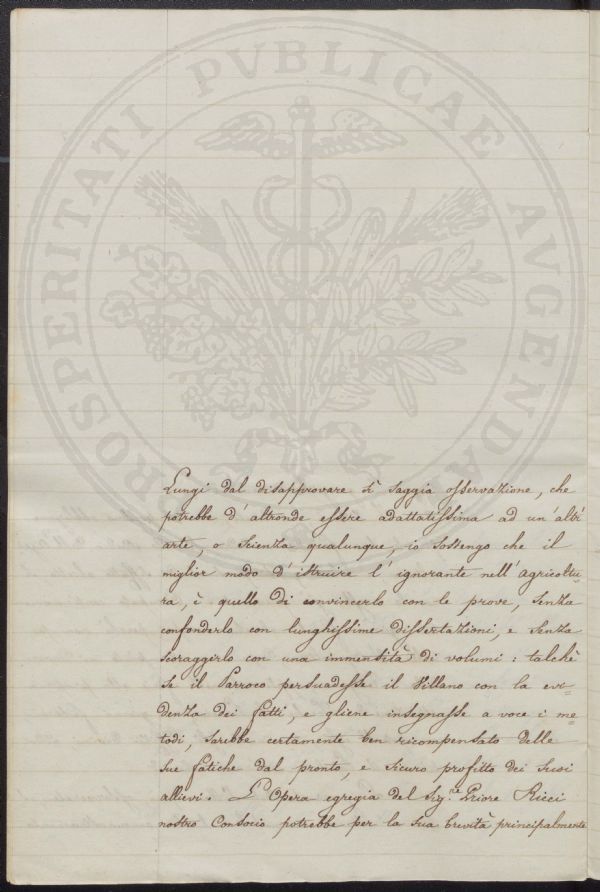 PROSPERITATI PVBLICAE AVGENDAE
Lungi dal disapprovare sì saggia osservazione, che
potrebbe d'altronde essere adattatissima ad un'altr'
arte, o scienza qualunque, io sostengo che il
miglior modo d'istruire l'ignorante nell'agricoltu=
ra, è quello di convincerlo con le prove, senza
confonderlo con lunghissime dissertazioni, e senza
scoraggirlo con una immensità di volumi: talchè
se il Parroco persuadesse il Villano con la evi=
denza dei fatti, e gliene insegnasse a voce i me=
todi, sarebbe certamente ben ricompensato delle
sue fatiche dal pronto, e sicuro profitto dei suoi
allievi. L'Opera egregia del Sig.re Priore Ricci
nostro Consocio potrebbe per la sua brevità principalmente